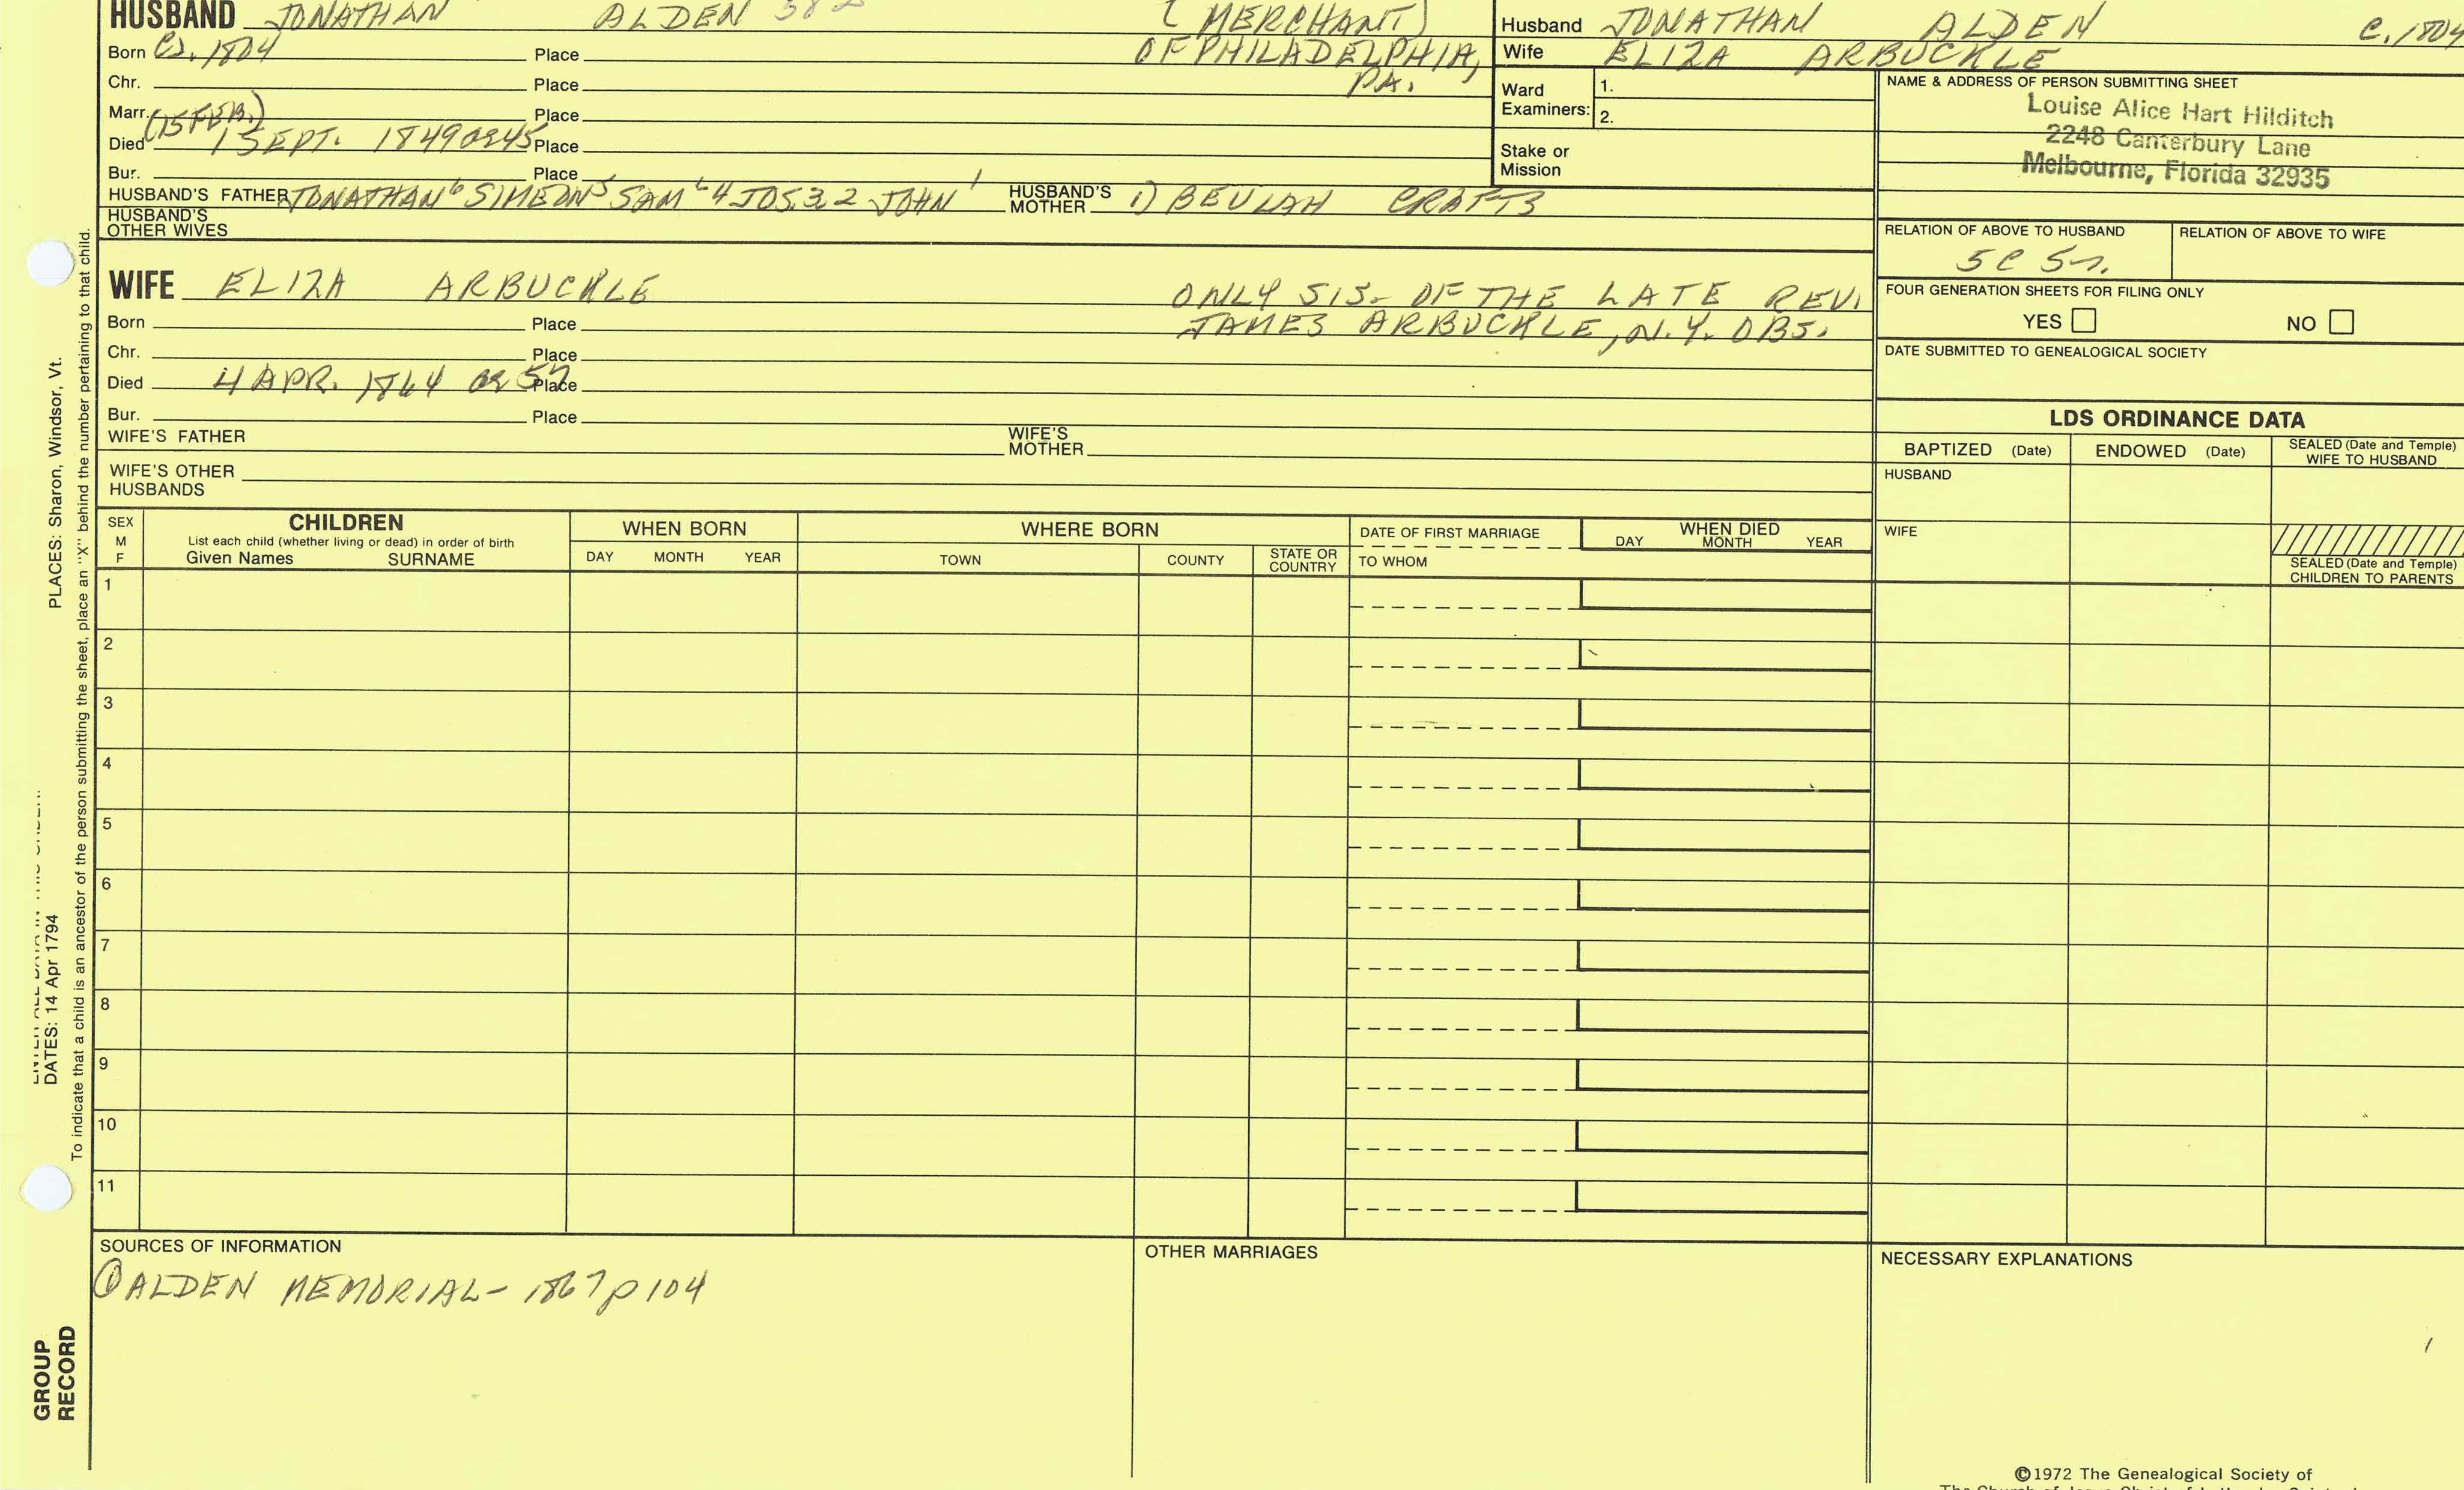 HUSBAND JONATHAN ALDEN 582 (MERCHANT)
Born Ca. 1804 Place OF PHILADELPHIA,
PA.
Chr. Place
Marr. (15 FEB.) Place
Died 1 SEPT. 1849 OR 45 Place
Bur. Place
HUSBAND'S FATHER JONATHAN 6 SIMEON 5 SAM'L 4 JOS. 3, 2 JOHN 1 HUSBAND'S MOTHER 1) BEULAH CRAFTS
HUSBAND'S OTHER WIVES
Husband JONATHAN ALDEN C. 1804
Wife ELIZA ARBUCKLE
Ward Examiners: 1.
2.
Stake or Mission
NAME & ADDRESS OF PERSON SUBMITTING SHEET
Louise Alice Hart Hilditch
2248 Canterbury Lane
Melbourne, Florida 32935
RELATION OF ABOVE TO HUSBAND RELATION OF ABOVE TO WIFE
5C 5
FOUR GENERATION SHEETS FOR FILING ONLY
YES NO
DATE SUBMITTED TO GENEALOGICAL SOCIETY
WIFE ELIZA ARBUCKLE ONLY SIS. OF THE LATE REV.
Born Place JAMES ARBUCKLE, N.Y. OBS.
Chr. Place
Died 4 APR. 1864 OR 57 Place
Bur. Place
WIFE'S FATHER WIFE'S MOTHER
WIFE'S OTHER HUSBANDS
LDS ORDINANCE DATA
BAPTIZED (Date) ENDOWED (Date) SEALED (Date and Temple) WIFE TO HUSBAND
HUSBAND
WIFE
SEALED (Date and Temple) CHILDREN TO PARENTS
SEX M F
CHILDREN
List each child (whether living or dead) in order of birth
Given Names SURNAME
WHEN BORN
DAY MONTH YEAR
WHERE BORN
TOWN COUNTY STATE OR COUNTRY
DATE OF FIRST MARRIAGE
TO WHOM
WHEN DIED
DAY MONTH YEAR
1
2
3
4
5
6
7
8
9
10
11
SOURCES OF INFORMATION
① ALDEN MEMORIAL - 1867 p 104
OTHER MARRIAGES
NECESSARY EXPLANATIONS
©1972 The Genealogical Society of
DATES: 14 Apr 1794 PLACES: Sharon, Windsor, Vt.
To indicate that a child is an ancestor of the person submitting the sheet, place an "X" behind the number pertaining to that child.
GROUP
RECORD